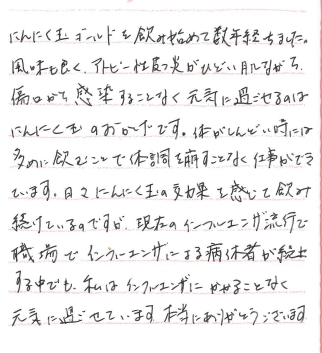 にんにく玉ゴールドを飲み始めて数年経ちました。
風味も良く、アトピー性皮フ炎がひどい肌ながら、
傷口から感染することなく元気に過ごせるのは
にんにく玉のおかげです。体がしんどい時には
多めに飲むことで体調を崩すことなく仕事ができ
ています。日々にんにく玉の効果を感じて飲み
続けているのですが、現在のインフルエンザ流行で
職場でインフルエンザによる病休者が続出
する中でも、私はインフルエンザにかかることなく
元気に過ごせています。本当にありがとうございます